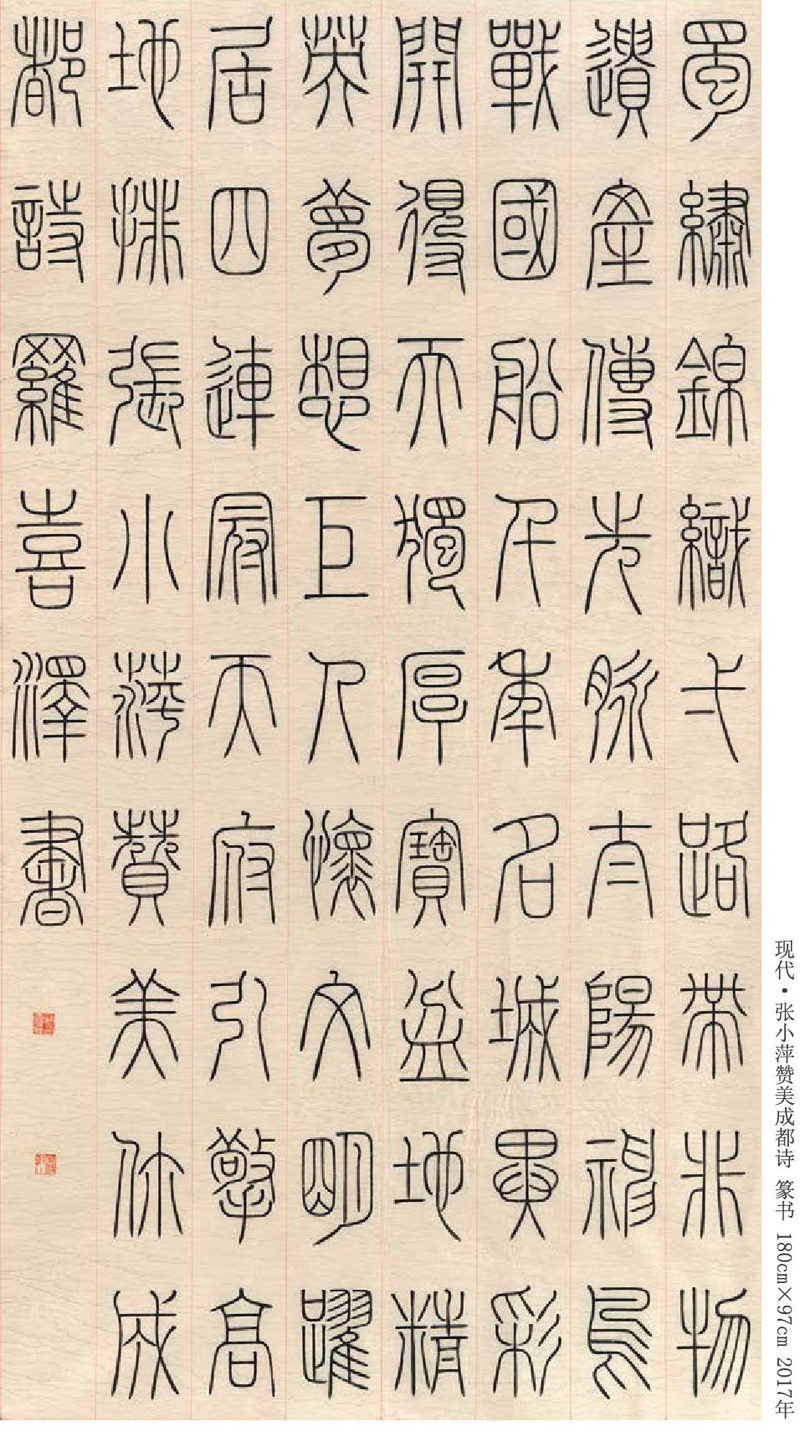 蜀繡錦織弌路帶非物
遺產傳先脈太陽神鳥
戰國船千年名城異彩
開得天獨厚寶盆地精
英夢想巨人懷文明躍
居四連冠天府引擎高
地張小萍贊美成
都詩羅喜澤書
现代·张小萍赞美成都诗 篆书 180cm×97cm 2017年